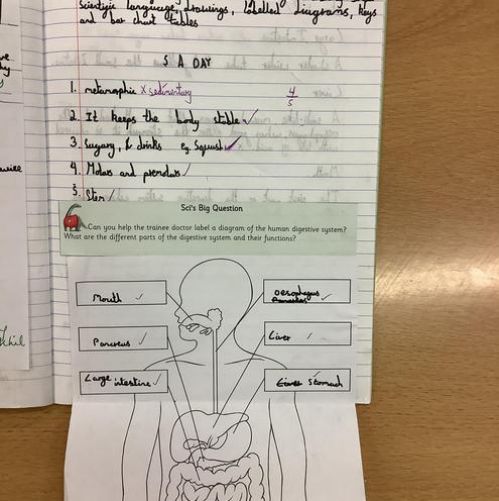 Scientific language, drawings, labelled diagrams, keys
and bar chart tables
5 A DAY
1. metamorphic x sedimentary
4/5
2. It keeps the body stable ✓
3. Sugary, drinks eg Squash ✓
4. Molars and premolars ✓
5. Stem ✓
Sci's Big Question
Can you help the trainee doctor label a diagram of the human digestive system?
What are the different parts of the digestive system and their functions?
Mouth ✓
Oesophagus
Pancreas ✓
Liver ✓
Large intestine ✓
Stomach